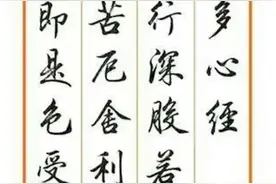 多心經
行深般若
苦厄舍利
即是色受